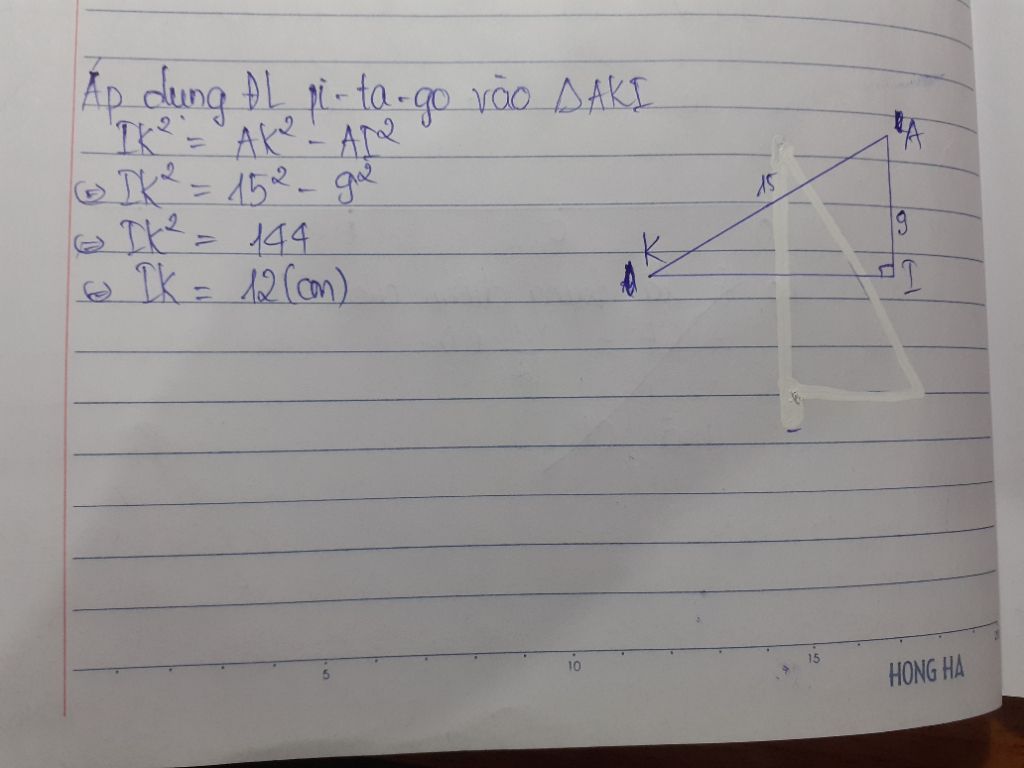 Áp dụng ĐL pi-ta-go vào ΔAKI
IK² = AK² - AI²
⇔ IK² = 15² - 9²
⇔ IK² = 144
⇔ IK = 12 (cm)
A
15
9
K
I
5
10
15
HONG HA